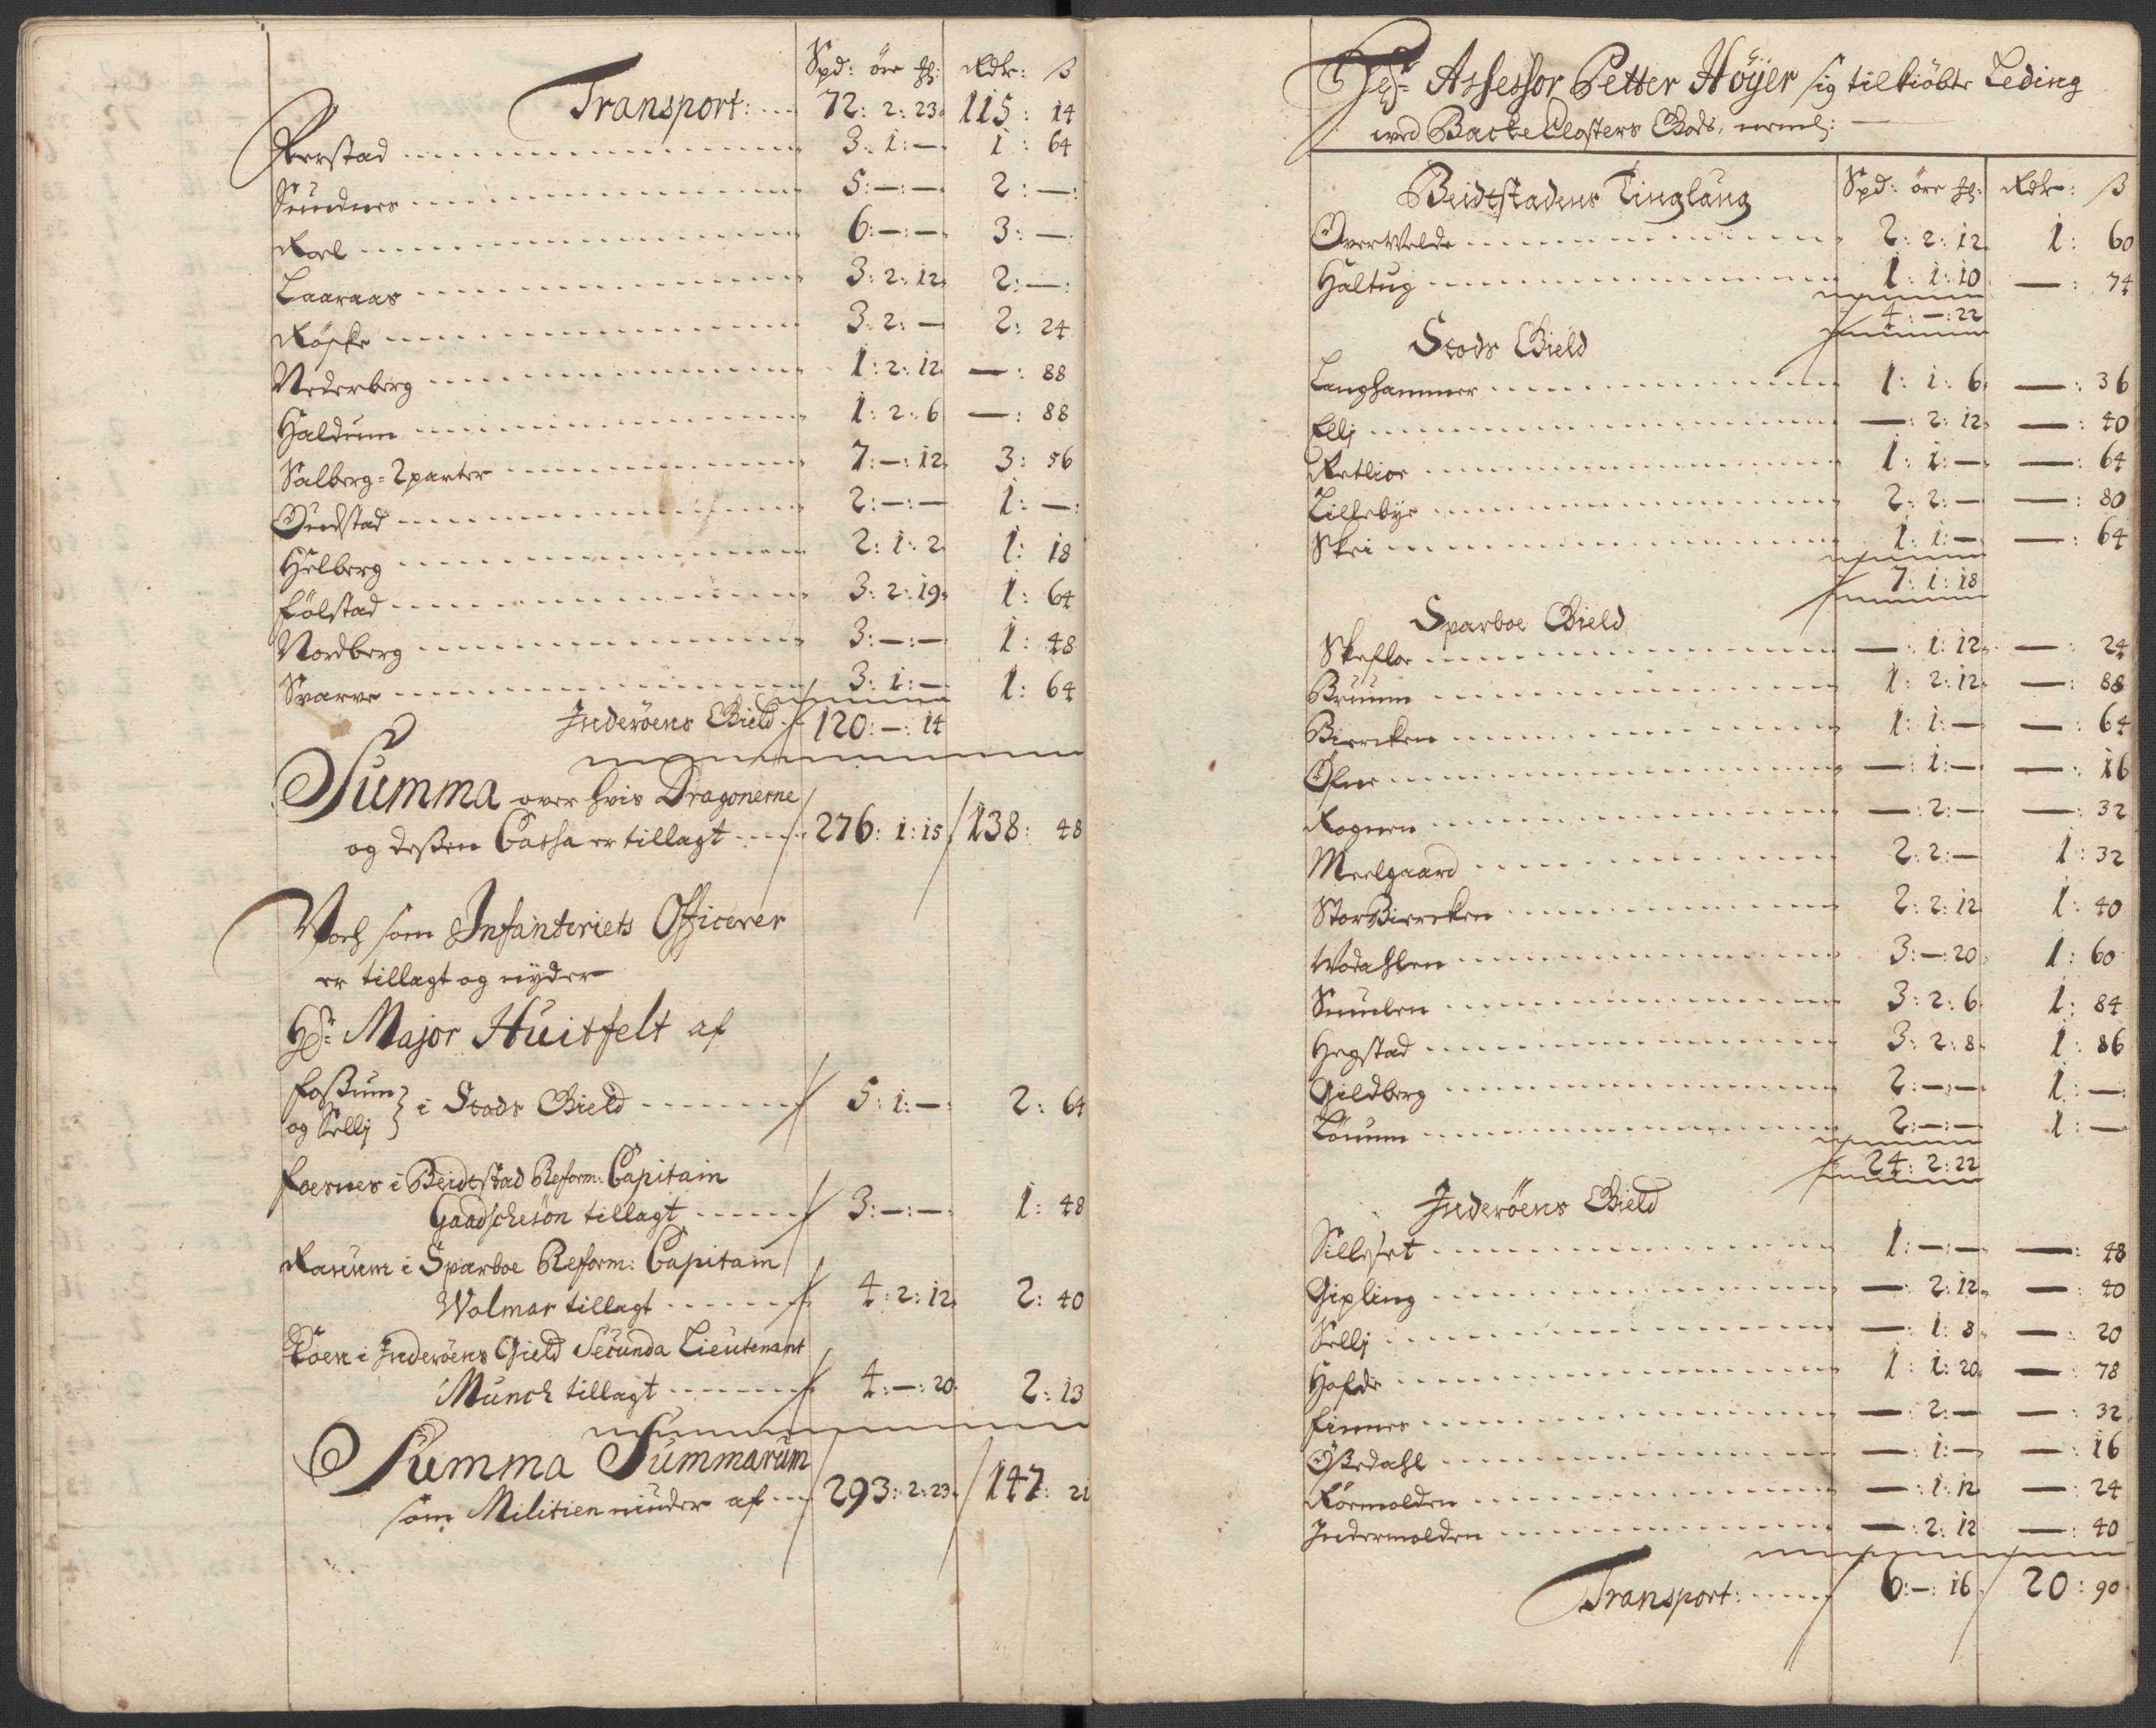 Spd: öre Rdr: ß
Transport: 72: 2: 23. 115: 14
Verstad 3: 1: — 1: 64
Sundnes 5: —: — 2: —:
Roel 6: —: — 3: —:
Laaraas 3: 2: 12. 2: —:
Röske 3: 2: — 2: 24
Nederberg 1: 2: 12. —: 88
Haldum 1: 2: 6 —: 88
Salberg = 2 parter 7: —: 12. 3: 56
Qvedstad 2: —: — 1: —:
Helberg 2: 1: 2 1: 18
Følstad 3: 2: 19. 1: 64
Nordberg 3: —: — 1: 48
Svarve 3: 1: — 1: 64
Inderöens Gield 120: —: 14
Summa over hvis Dragonerne
og deßen Cassa er tillagt 276: 1: 15 138: 48
Noch som Infanteriets Officerer
er tillagt og nÿder
Hr: Major Huitfelt af
Foßum
og Sellj } i Stods Gield 5: 1: — 2: 64
Foesnes i Beidtstad Reform: Capitain
Gaadschesøn tillagt 3: —: — 1: 48
Ranum i Sparboe Reform: Capitain
Wolmar tillagt 4: 2: 12. 2: 40
Roen i Inderöens Gield Secunda Lieutenant
Munch tillagt 4: —: 20. 2: 13
Summa Summarum
som Militien niuder af 293: 2: 23. 147: 21
Hr: Assessor Petter Höÿer sig tilkiöbte Leding
ved Backe Closters Gods, neml:
Beidtstadens Tinglaug Spd: öre Rdr: ß
OverWelde 2: 2: 12. 1: 60
Haltug 1: 1: 10 —: 74
4: —: 22
Stods Gield
Langhammer 1: 1: 6. —: 36
Ellj —: 2: 12. —: 40
Retlioe 1: 1: — —: 64
Lillebÿe 2: 2: — —: 80
Skei 1: 1: — —: 64
7: 1: 18
Sparboe Gield
Skefloe —: 1: 12. —: 24
Bruum 1: 2: 12. —: 88
Biercken 1: 1: — —: 64
Öfne —: 1: — —: 16
Rognen —: 2: — —: 32
Meelgaard 2: 2: — 1: 32
StorBiercken 2: 2: 12. 1: 40
Wodahlen 3: —: 20. 1: 60
Smulen 3: 2: 6. 1: 84
Hegstad 3: 2: 8. 1: 86
Gildberg 2: —: — 1: —:
Löuum 2: —: — 1: —
24: 2: 22
Inderöens Gield
Silleset 1: —: — —: 48
Gipling —: 2: 12. —: 40
Sellj —: 1: 8. —: 20
Hofde 1: 1: 20. —: 78
Finnes —: 2: — —: 32
Ößedahl —: 1: — —: 16
Röemolden —: 1: 12 —: 24
Indermolden —: 2: 12 —: 40
Transport: 6: —: 16 20: 90